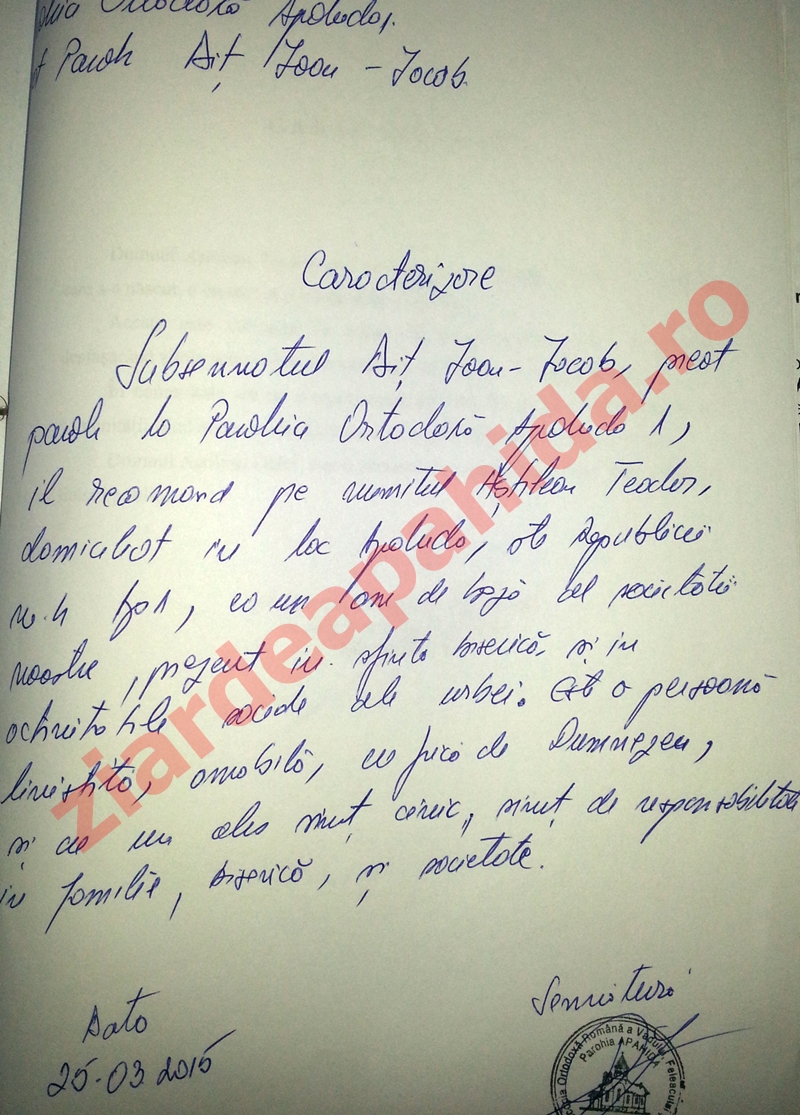 Ortodoxă Apahida 1.
Paroh Aiț Ioan - Iacob.
Caracterizare
Subsemnatul Aiț Ioan - Iacob, preot
paroh la Parohia Ortodoxă Apahida 1,
îl recomand pe numitul Teodor,
domiciliat în loc Apahida, str Republicii
nr. 4 , ca un om de bază al societății
noastre, prezent în sfînta biserică și în
activitatile sociale ale urbei. Este o persoană
liniștită, amabilă, cu frică de Dumnezeu,
și cu un ales simț civic, simț de responsabilitate
în familie, biserică, și societate.
Semnătură
Data
25-03 2015
Ortodoxă Română a Vadului, Feleacului
Parohia APAHIDA
ziardeapahida.ro